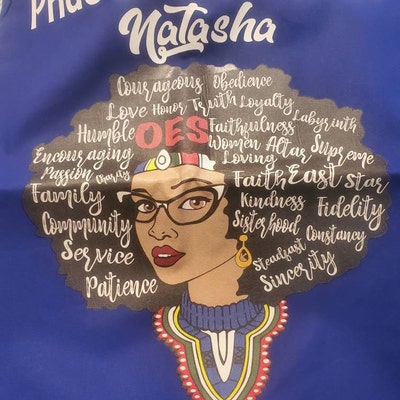 Natasha
Courageous Obedience
Love Honor Truth Loyalty
Labyrinth
Humble OES Faithfulness
Women Altar Supreme
Encouraging Loving
Passion Charity Faith East Star
Family Kindness Fidelity
Community Sisterhood Constancy
Service Steadfast
Patience Sincerity